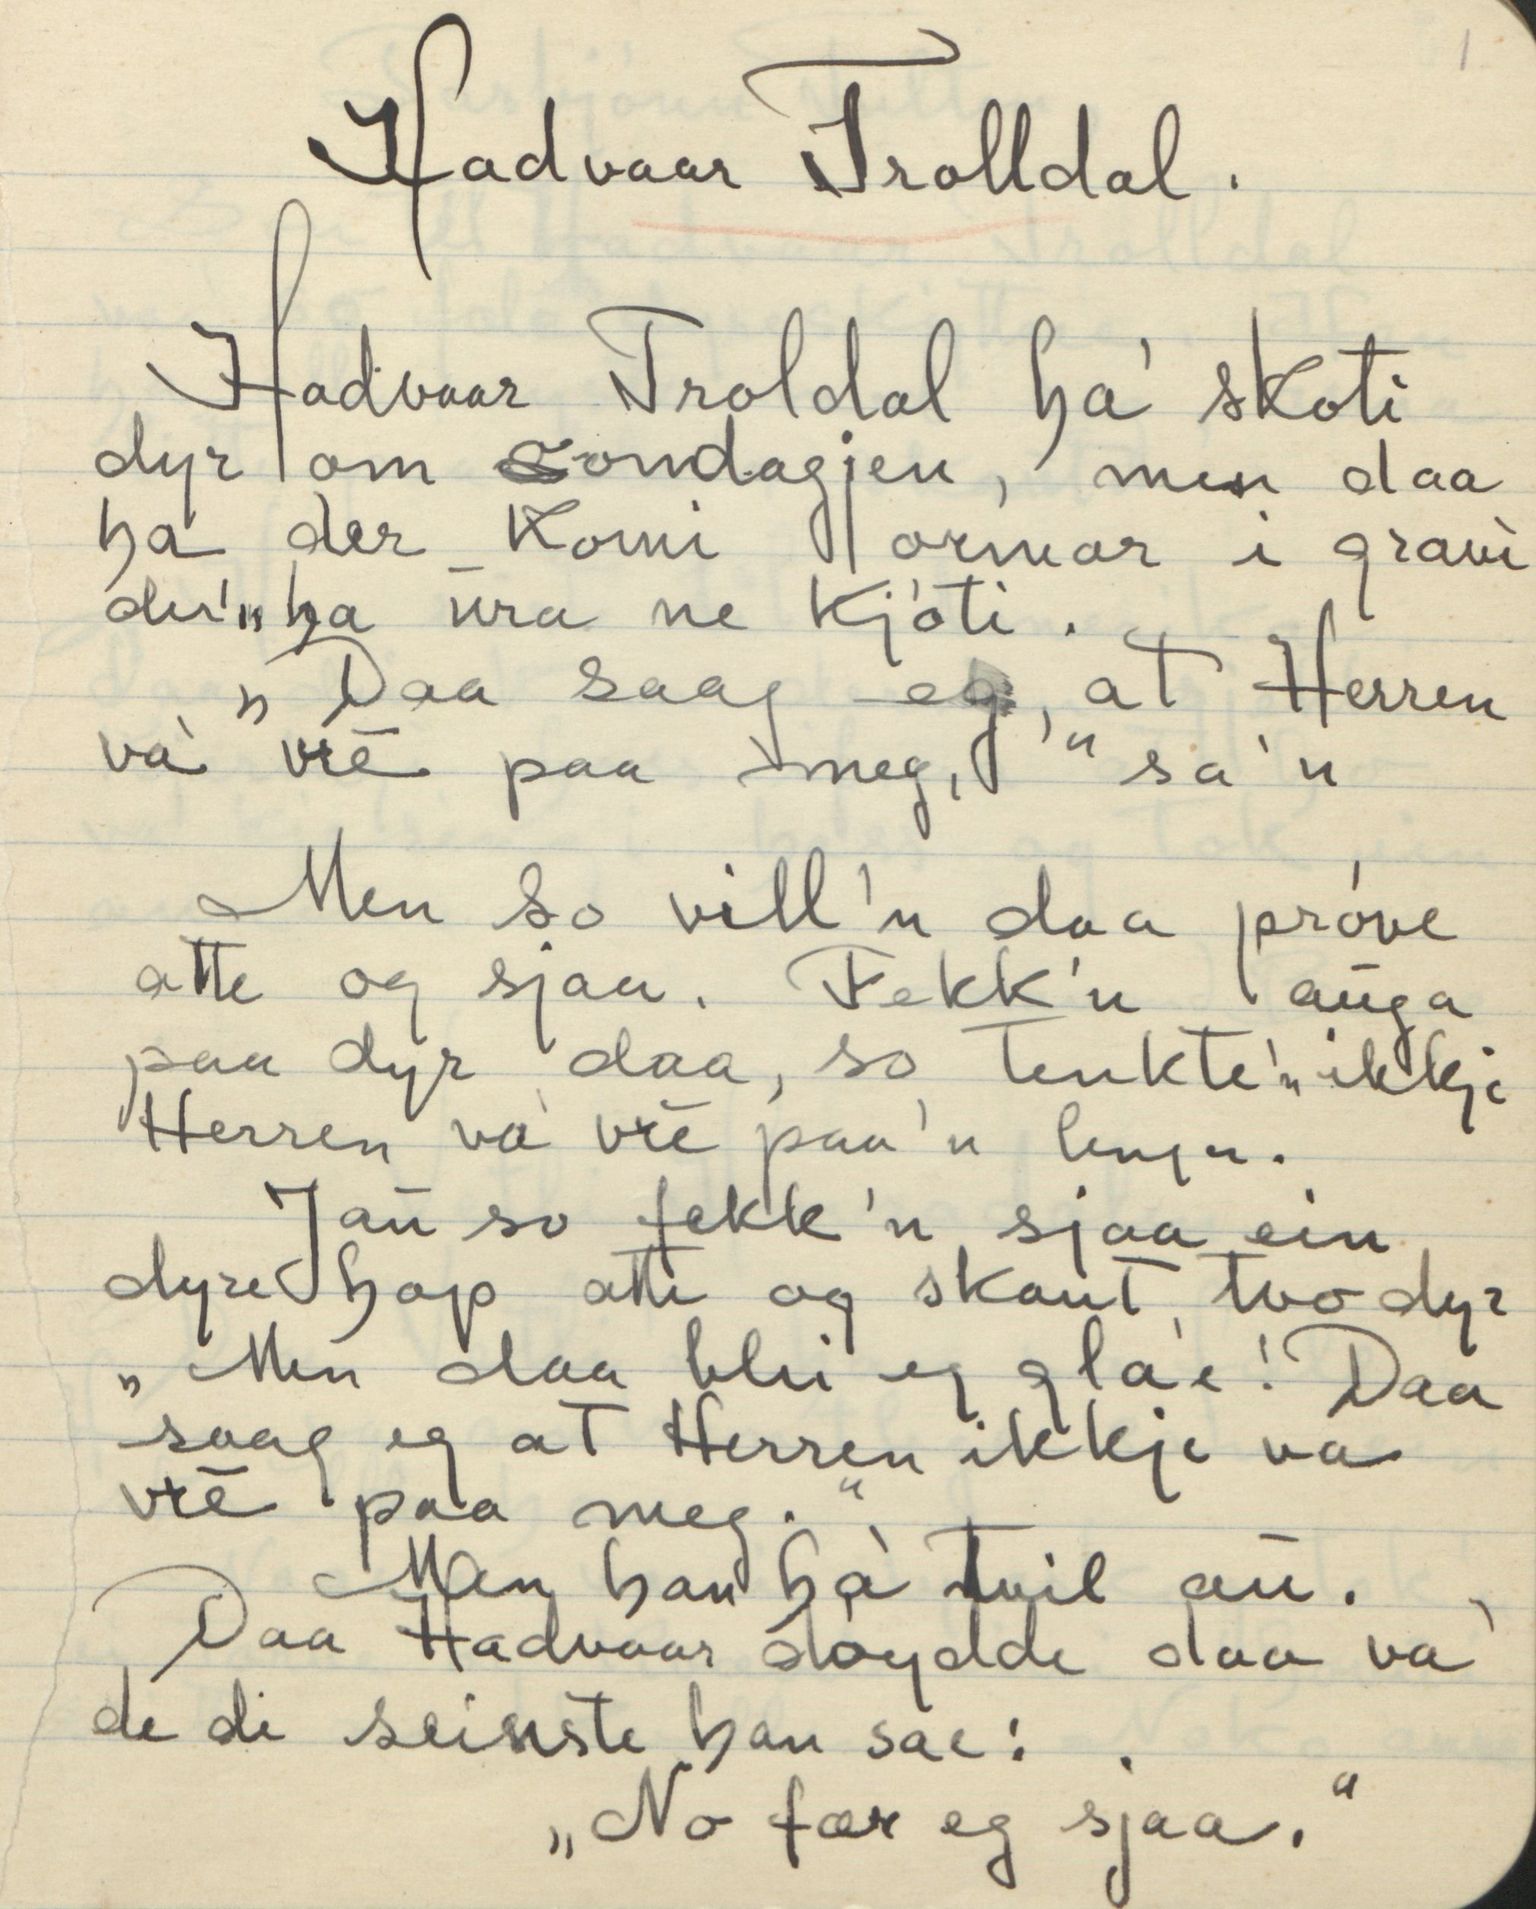 1
Hadvaar Trolldal.
Hadvaar Troldal ha' skoti
dyr om sondagjen, men daa
ha der komi ormar i gravi
der'n ha ūra ne kjóti.
„Daa saag eg, at Herren
va' vrē paa meg," sa'n
Men so vill'n daa próve
atte og sjaa. Fekk'n auga
paa dyr daa, so tenkte'n ikkje
Herren va' vrē paa'n lenger.
Jau so fekk'n sjaa ein
dyrehop atte og skaut tvo dyr
„Men daa blei eg gla'e! Daa
saag eg at Herren ikkje va
vrē paa meg."
Men han ha' tvil au.
Daa Hadvaar doydde daa va'
de di seinste han sae:
„No fær eg sjaa."